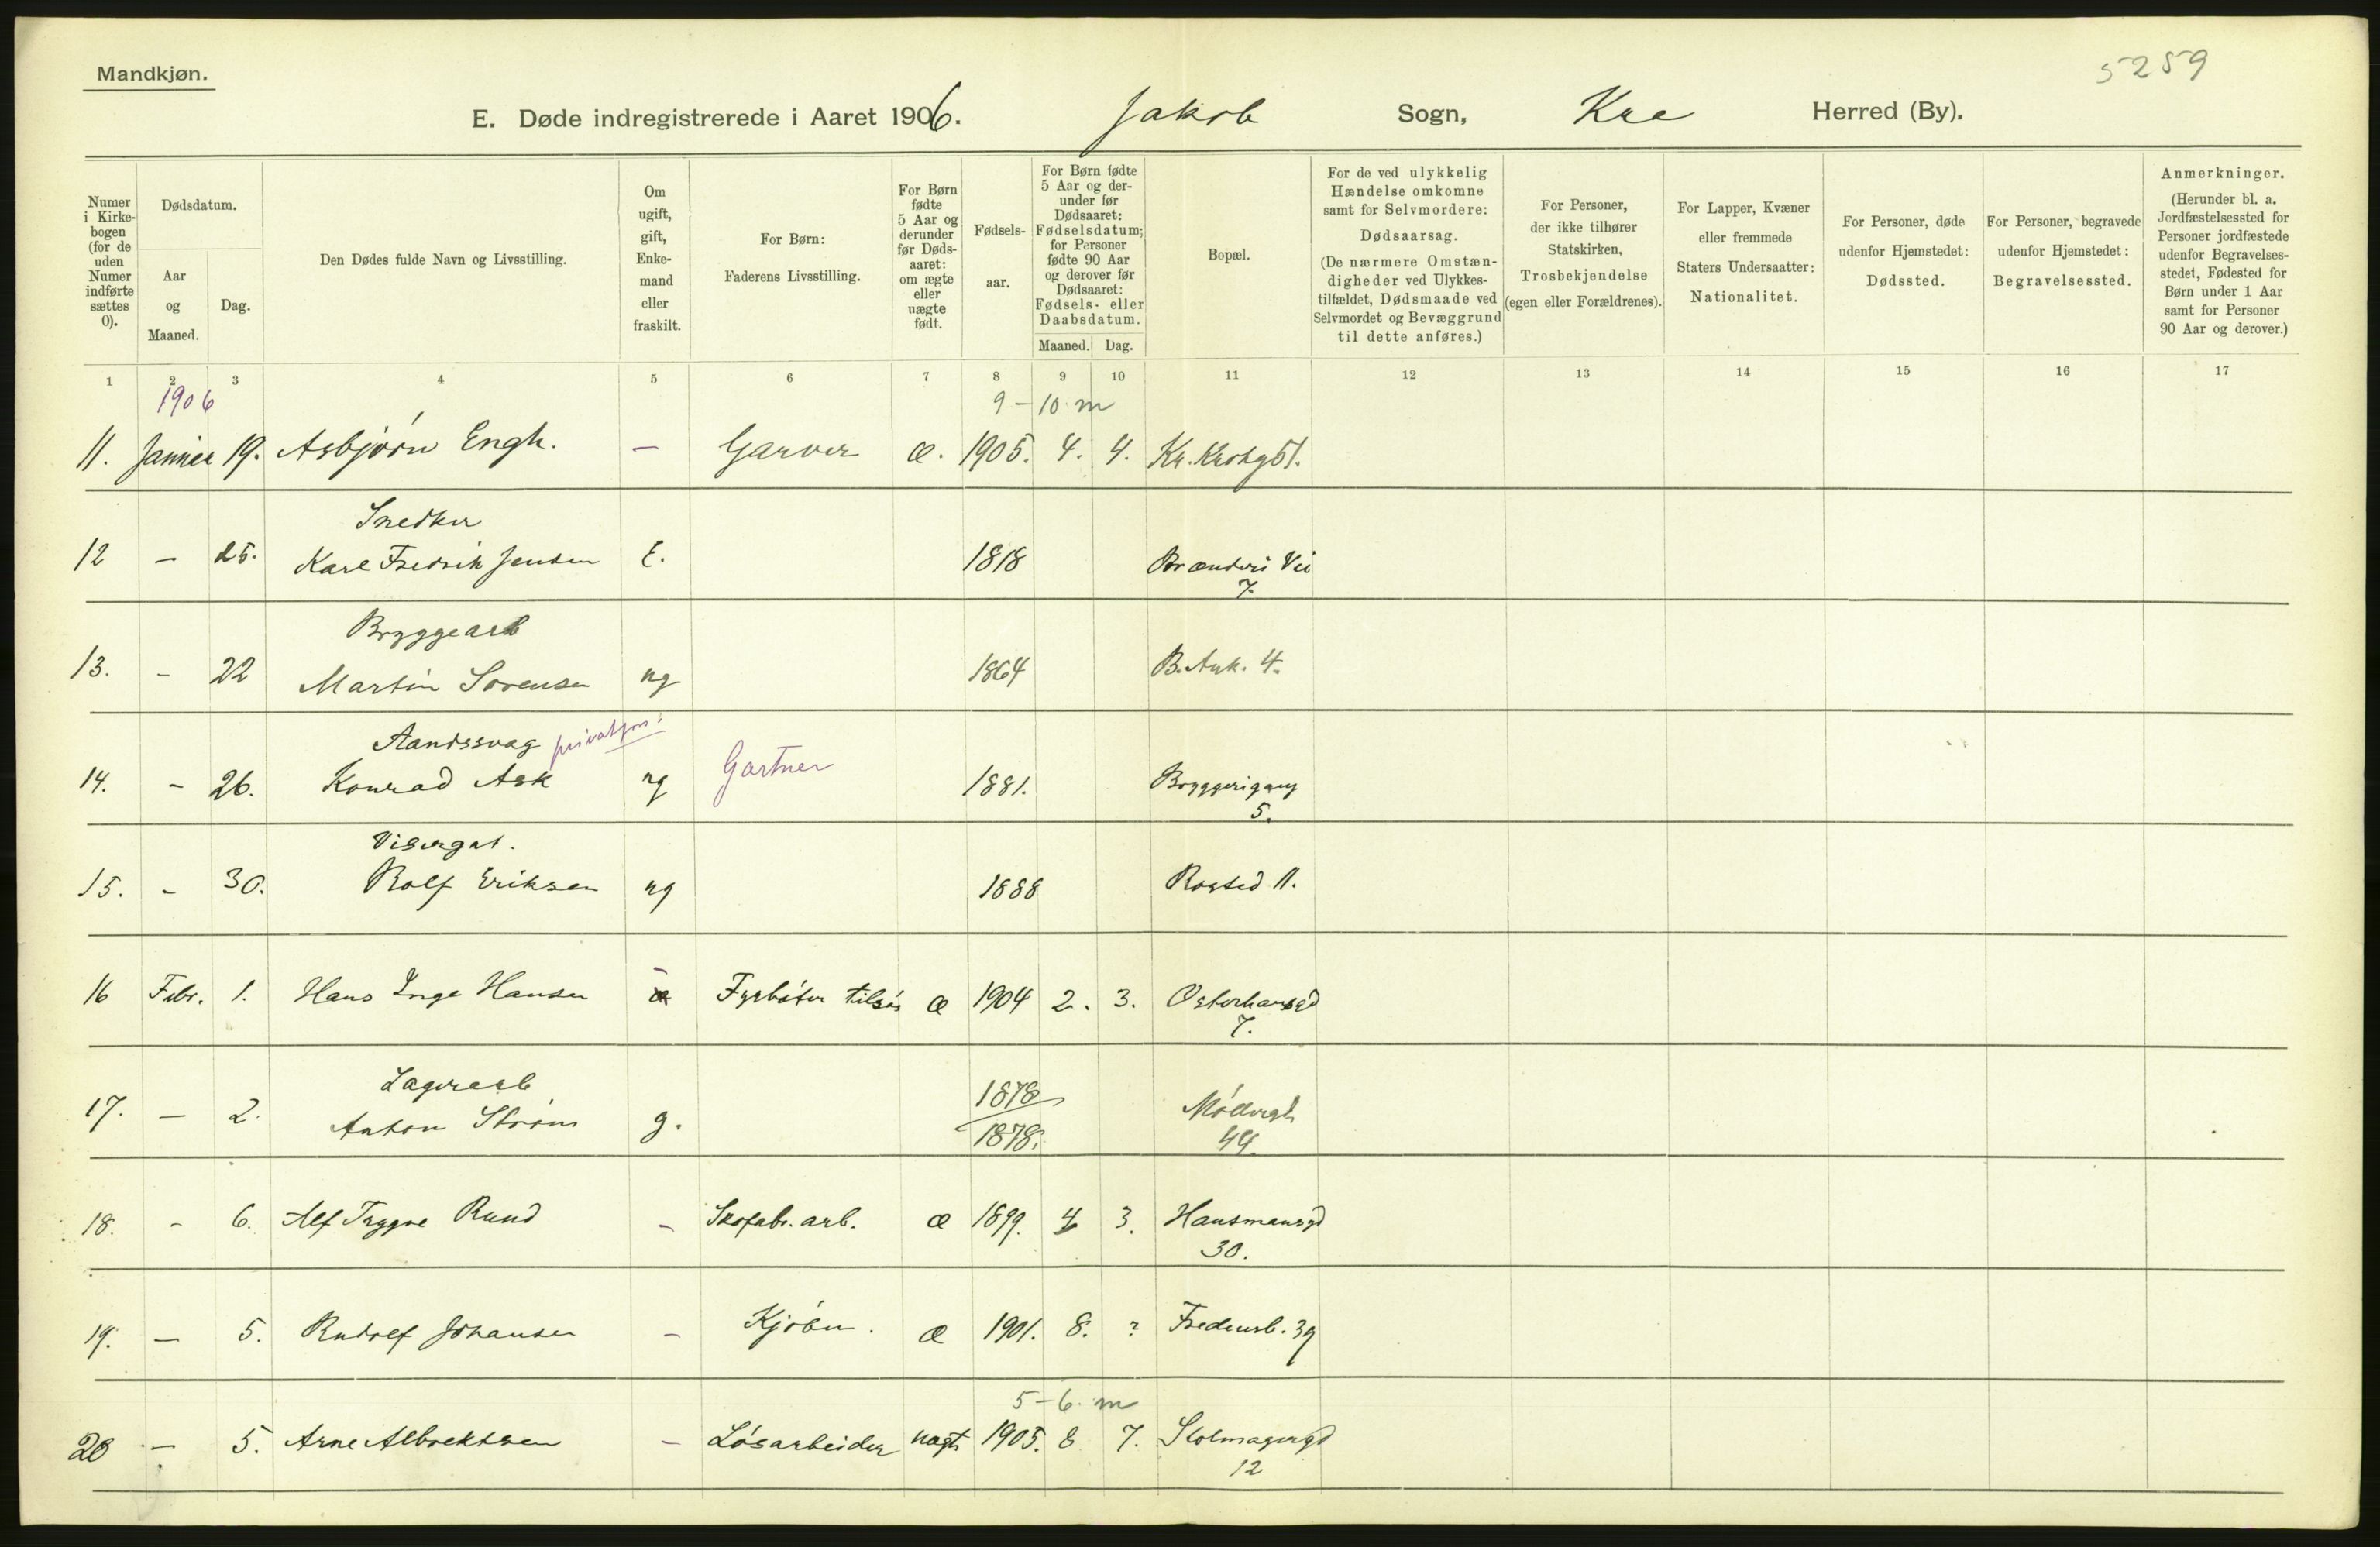 Mandkjøn.
5259
E. Døde indregistrerede i Aaret 1906. Jakob Sogn, Kra Herred (By).
Numer i Kirkebogen (for de uden Numer indførte sættes 0).
Dødsdatum.
Aar og Maaned.
Dag.
Den Dødes fulde Navn og Livsstilling.
Om ugift, gift, Enkemand eller fraskilt.
For Børn: Faderens Livsstilling.
For Børn fødte 5 Aar og derunder før Dødsaaret: om ægte eller uægte født.
Fødselsaar.
For Børn fødte 5 Aar og derunder før Dødsaaret: Fødselsdatum; for Personer fødte 90 Aar og derover før Dødsaaret: Fødsels- eller Daabsdatum.
Maaned. Dag.
Bopæl.
For de ved ulykkelig Hændelse omkomne samt for Selvmordere: Dødsaarsag. (De nærmere Omstændigheder ved Ulykkestilfældet, Dødsmaade ved Selvmordet og Bevæggrund til dette anføres.)
For Personer, der ikke tilhører Statskirken, Trosbekjendelse (egen eller Forældrenes).
For Lapper, Kvæner eller fremmede Staters Undersaatter: Nationalitet.
For Personer, døde udenfor Hjemstedet: Dødssted.
For Personer, begravede udenfor Hjemstedet: Begravelsessted.
Anmerkninger. (Herunder bl. a. Jordfæstelsessted for Personer jordfæstede udenfor Begravelsesstedet, Fødested for Børn under 1 Aar samt for Personer 90 Aar og derover.)
1 2 3 4 5 6 7 8 9 10 11 12 13 14 15 16 17
1906 9-10 m
11. Januar 19. Asbjørn Engh. — Garver æ. 1905. 4. 4. Kr. Krohg 51.
Snedker
12 — 25. Karl Fredrik Jensen E. 1818 Brænderi Vei
7.
Bryggearb
13. - 22 Martin Sørensen ug 1864 B. Ank. 4.
Aandssvag
14. - 26. Konrad Ask ug Gartner 1881. Bryggerigang
5.
Visergut.
15. - 30. Rolf Eriksen ug 1888 Rosted 11.
16 Febr. 1. Hans Inge Hansen - Fyrbøter tilsøs æ 1904 2. 3. Osterhausgd
7.
Lagerarb 1878
17. — 2. Anton Strøm g. 1878. Møllergt
44.
18. - 6. Alf Trygve Ruud - Skofabr. arb. æ 1899. 4 3. Hausmansgd
30.
19. — 5. Rudolf Johansen - Kjøbm. æ 1901. 8. ? Fredensb. 39
5-6 m
20 — 5. Arne Albrektsen - Løsarbeider uægt 1905. 8 7. Stolmagergd
12